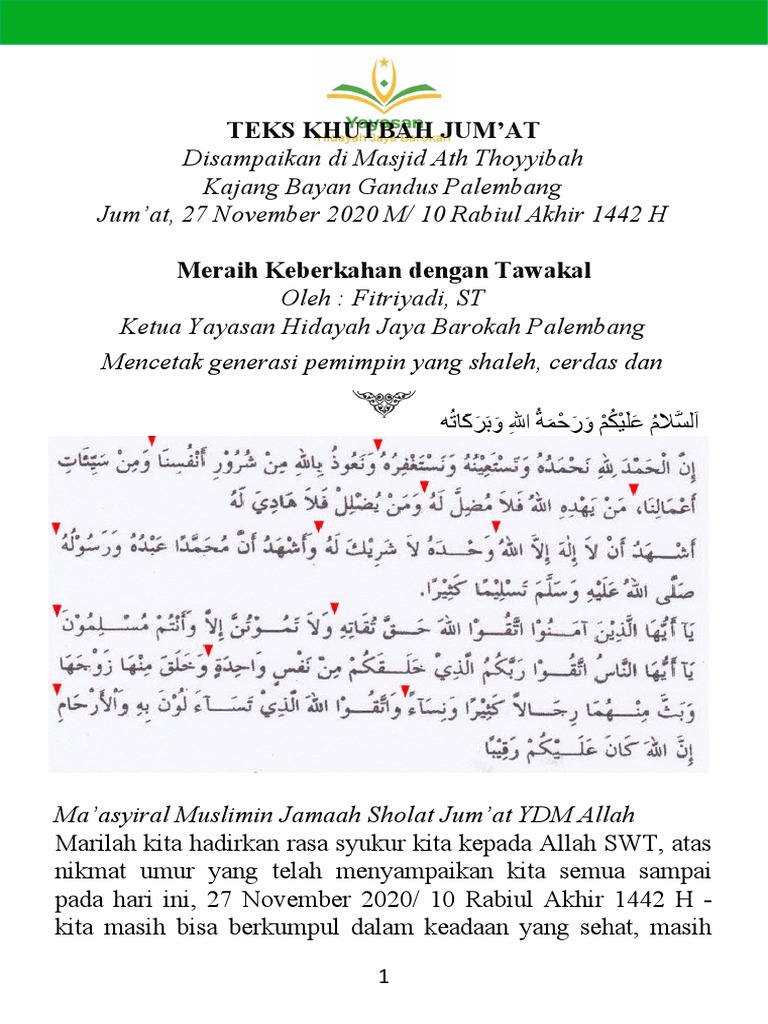 Yayasan
Hidayah Jaya Barokah
TEKS KHUTBAH JUM’AT
Disampaikan di Masjid Ath Thoyyibah
Kajang Bayan Gandus Palembang
Jum’at, 27 November 2020 M/ 10 Rabiul Akhir 1442 H
Meraih Keberkahan dengan Tawakal
Oleh : Fitriyadi, ST
Ketua Yayasan Hidayah Jaya Barokah Palembang
Mencetak generasi pemimpin yang shaleh, cerdas dan
اَلسَّلاَمُ عَلَيْكُمْ وَرَحْمَةُ اللهِ وَبَرَكَاتُه
إِنَّ الْحَمْدَ لِلهِ نَحْمَدُهُ وَنَسْتَعِيْنُهُ وَنَسْتَغْفِرُهُ وَنَعُوذُ بِاللهِ مِنْ شُرُوْرِ أَنْفُسِنَا وَمِنْ سَيِّئَاتِ
أَعْمَالِنَا، مَنْ يَهْدِهِ اللهُ فَلاَ مُضِلَّ لَهُ وَمَنْ يُضْلِلْ فَلاَ هَادِيَ لَهُ
أَشْهَدُ أَنْ لاَ إِلهَ إِلاَّ اللهُ وَحْدَهُ لاَ شَرِيْكَ لَهُ وَأَشْهَدُ أَنَّ مُحَمَّدًا عَبْدُهُ وَرَسُوْلُهُ
صَلَّى اللهُ عَلَيْهِ وَسَلَّمَ تَسْلِيْمًا كَثِيْرًا.
يَآ أَيُّهَا الَّذِيْنَ آمَنُوْا اتَّقُوْا اللهَ حَقَّ تُقَاتِهِ وَلاَ تَمُوْتُنَّ إِلاَّ وَأَنْتُمْ مُسْلِمُوْنَ
يَآ أَيُّهَا النَّاسُ اتَّقُوْا رَبَّكُمُ الَّذِيْ خَلَقَكُمْ مِنْ نَفْسٍ وَاحِدَةٍ وَخَلَقَ مِنْهَا زَوْجَهَا
وَبَثَّ مِنْهُمَا رِجَالاً كَثِيْرًا وَنِسَآءً وَاتَّقُوْا اللهَ الَّذِيْ تَسَآءَلُوْنَ بِهِ وَالْأَرْحَامِ
إِنَّ اللهَ كَانَ عَلَيْكُمْ رَقِيْبًا
Ma’asyiral Muslimin Jamaah Sholat Jum’at YDM Allah
Marilah kita hadirkan rasa syukur kita kepada Allah SWT, atas
nikmat umur yang telah menyampaikan kita semua sampai
pada hari ini, 27 November 2020/ 10 Rabiul Akhir 1442 H -
kita masih bisa berkumpul dalam keadaan yang sehat, masih
1